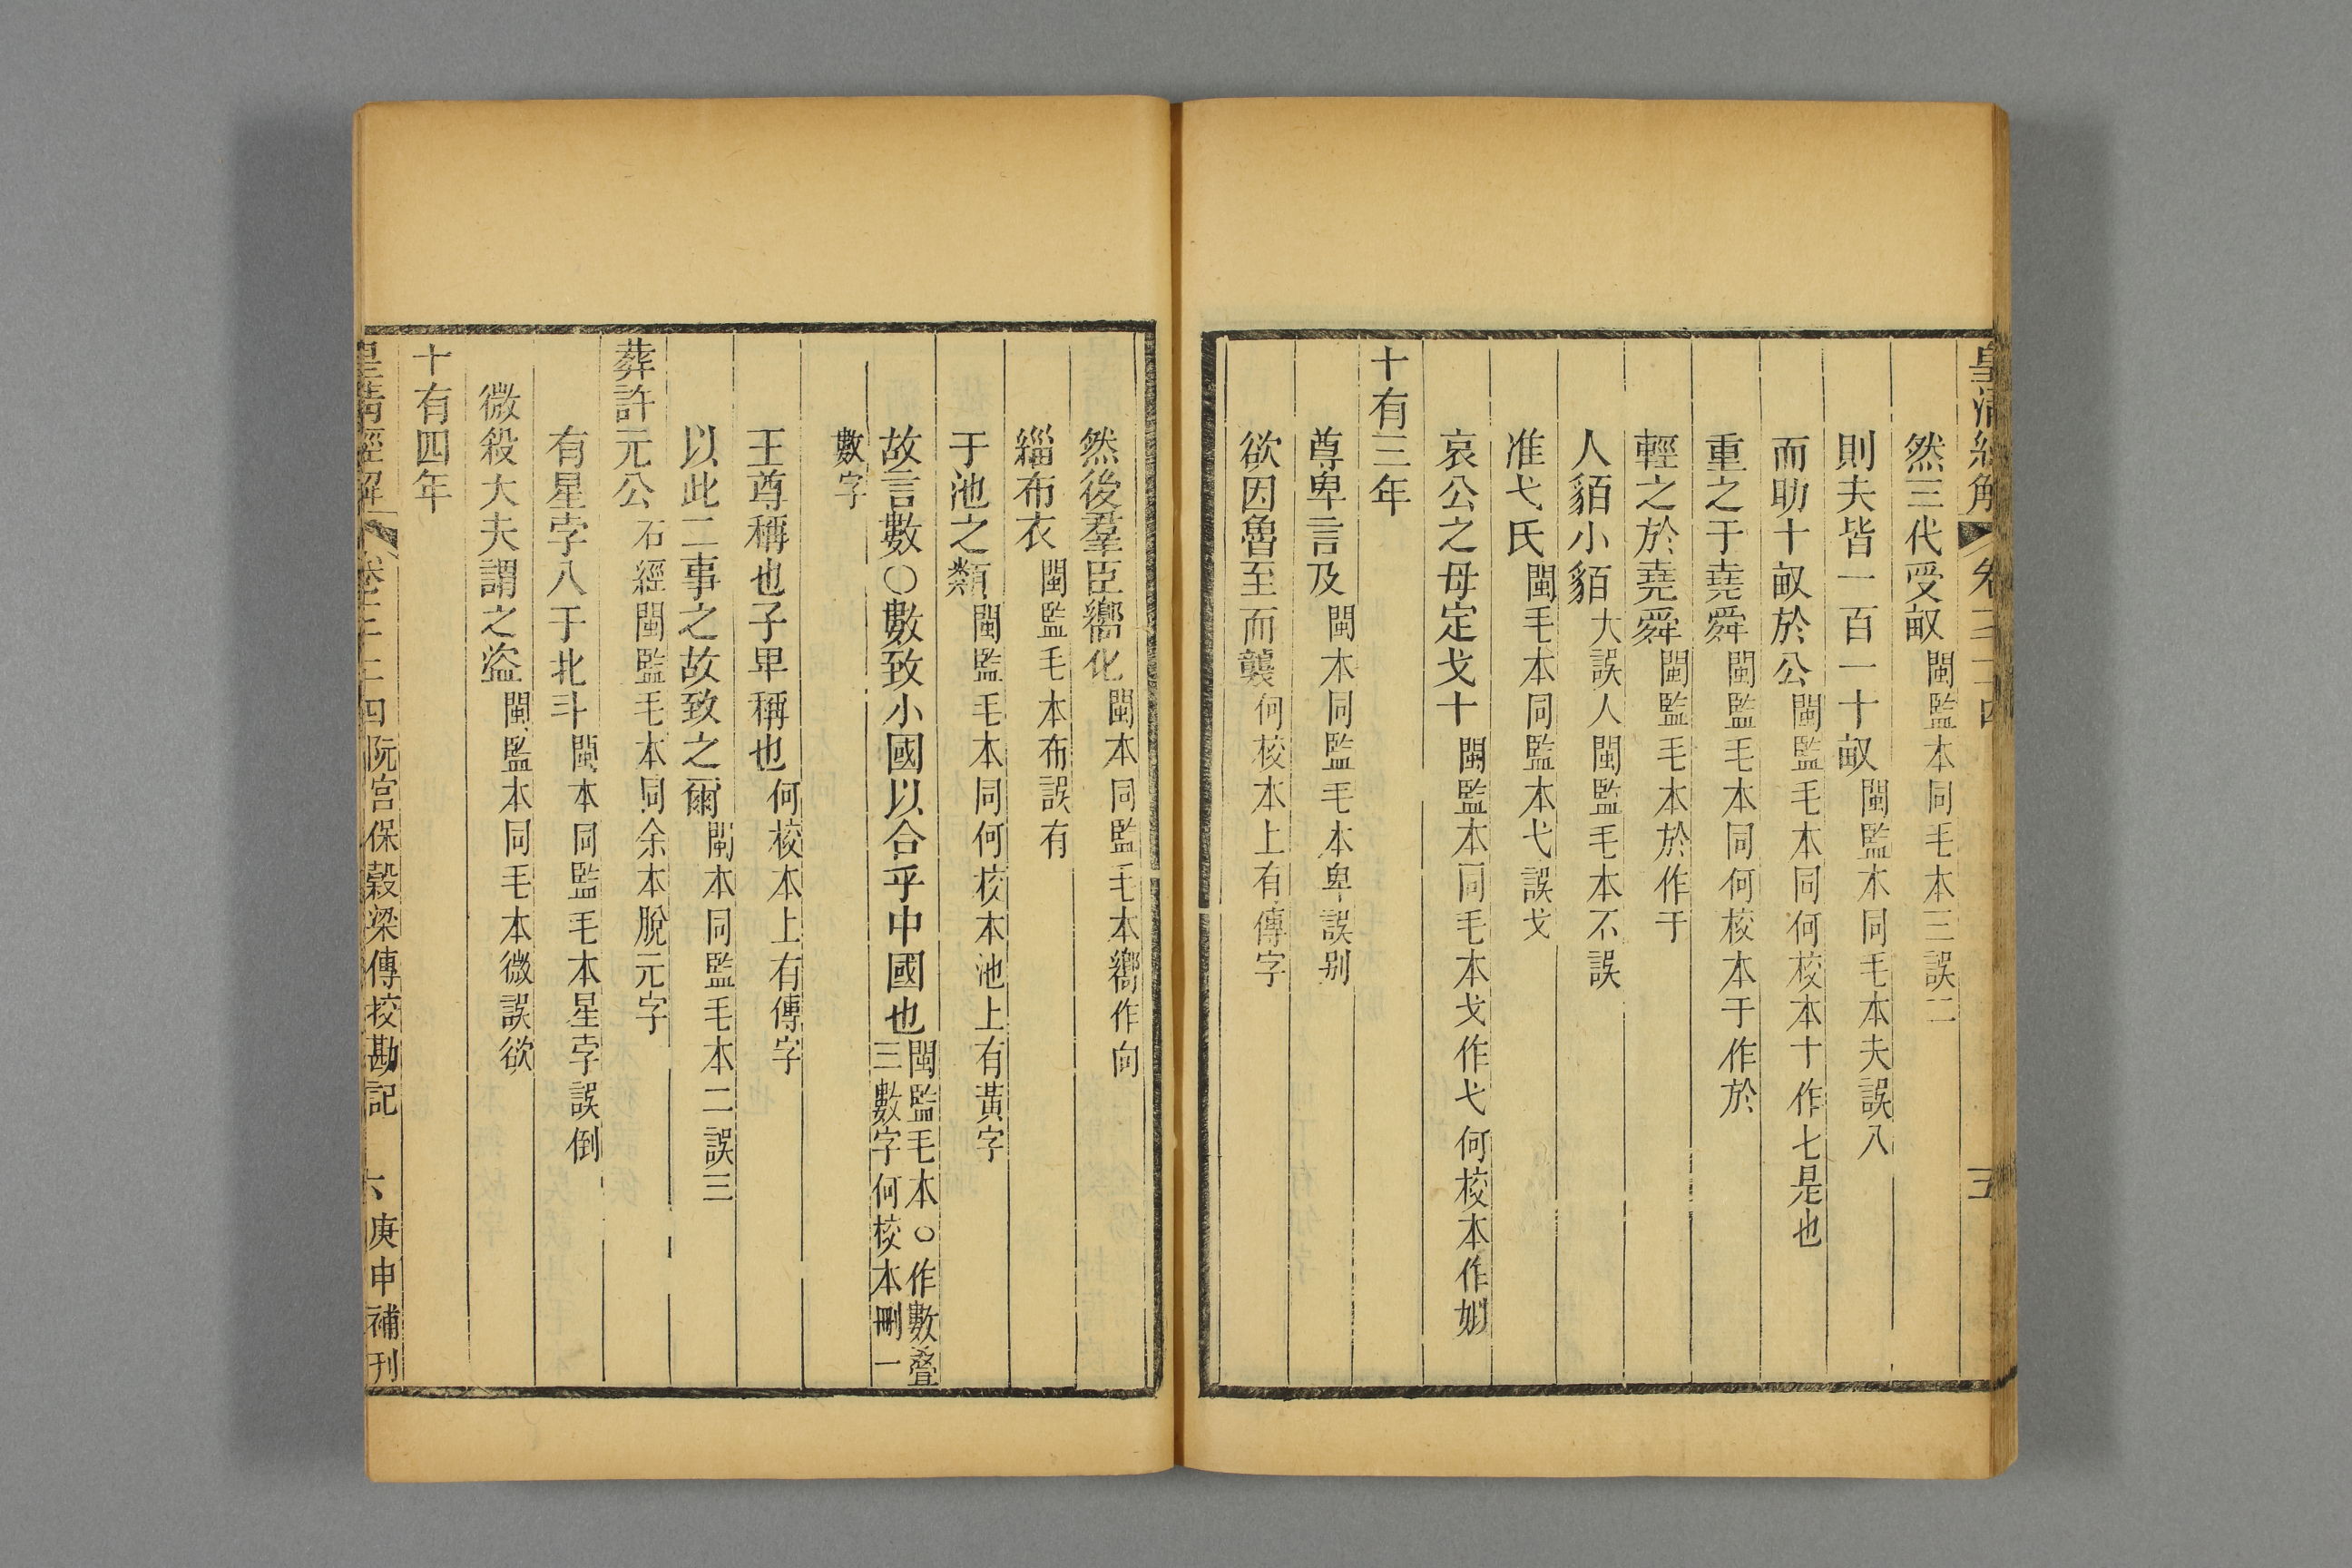 皇清經解 卷 五
然三代受畝閩監本同毛本三誤二
則夫皆一百一十畝閩監本同毛本夫誤八
而助十畝於公閩監毛本同何校本十作七是也
重之于堯舜閩監毛本同何校本于作於
輕之於堯舜閩監毛本於作于
人貊小貊大誤人閩監毛本不誤
准弋氏閩毛本同監本弋誤戈
哀公之母定戈十閩監本同毛本戈作弋何校本作姒
十有三年
尊卑言及閩本同監毛本卑誤别
欲因魯至而襲何校本上有傳字
然後羣臣嚮化閩本同監毛本嚮作向
緇布衣閩監毛本布誤有
于池之類閩監毛本同何校本池上有黃字
故言數〇數致小國以合乎中國也閩監毛本〇作數疊三數字何校本刪一
數字
王尊稱也子卑稱也何校本上有傳字
以此二事之故致之爾閩本同監毛本二誤三
葬許元公石經閩監毛本同余本脫元字
有星孛八于北斗閩本同監毛本星孛誤倒
微殺大夫謂之盜閩監本同毛本微誤欲
十有四年
皇清經解 卷千三十四 阮宮保穀梁傳挍勘記 六 庚申補刊